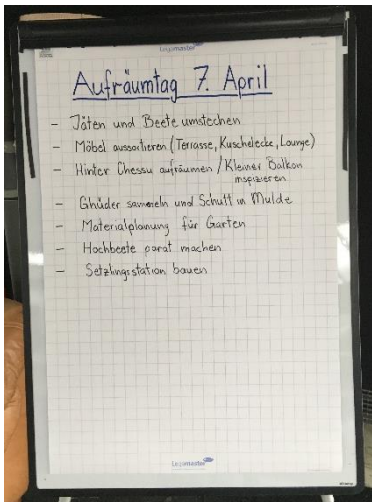 Legamaster
Aufräumtag 7. April
- Jäten und Beete umstechen
- Möbel aussortieren (Terrasse, Kuschelecke, Lounge)
- Hinter Chessu aufräumen / Kleiner Balkon
inspizieren
- Ghüder sammeln und Schutt in Mulde
- Materialplanung für Garten
- Hochbeete parat machen
- Setzlingsstation bauen
Legamaster